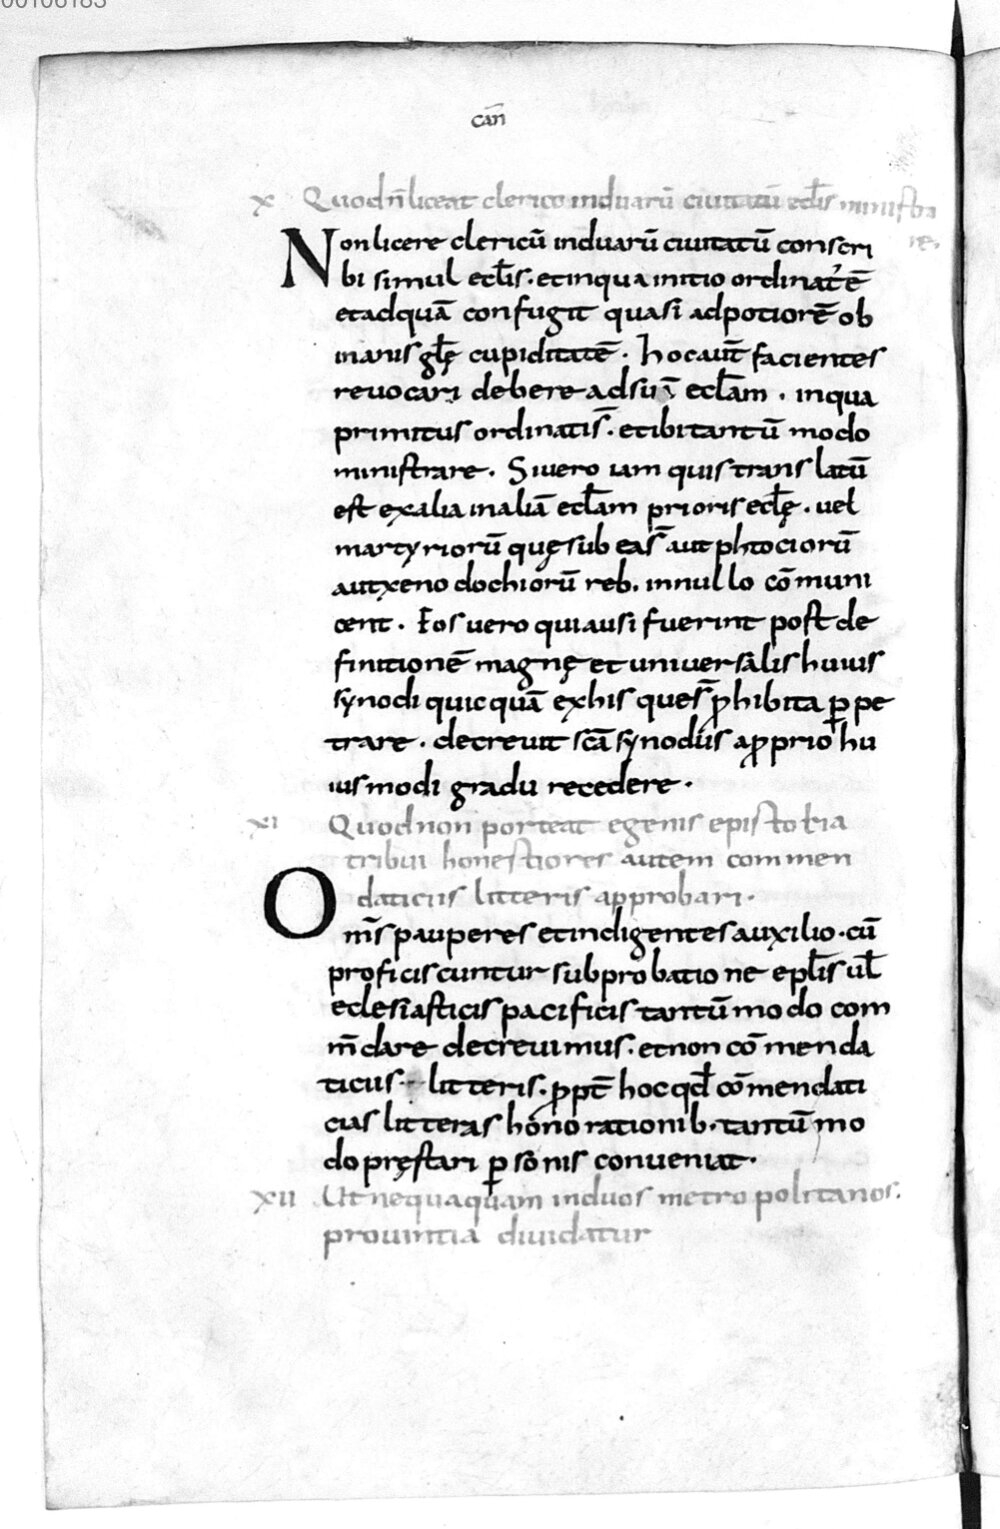 00106183
cān
x Quod n̄ liceat clerico in duarū ciuitatū eclīs ministra
re.
Non licere clericū in duarū ciuitatū conscri
bi simul eclīs. et in qua initio ordinatꝰ ē
et ad quā confugit quasi ad potiorē ob
inanis glę cupiditatē. hoc aut̄ facientes
reuocari debere ad suā eclām. in qua
primitus ordinatis̄. et ibi tantū modo
ministrare. Si uero iam quis translatū
est ex alia in aliā eclām prioris eclę. uel
martyriorū quę sub ea s̄ aut phtociorū
aut xenodochiorū reb. in nullo cōmuni
cent. Eos uero qui ausi fuerint post de
finitionē magnę et uniuersalis huius
synodi quicquā ex his que s̄ ꝓhibita ꝑpe
trare. decreuit scā synodus a ꝓprio hu
iusmodi gradu recedere.
xi Quod non porteat egenis epistolia
tribui honestiores autem commen
daticiis litteris approbari.
Om̄s pauperes et indigentes auxilio. cū
proficiscuntur sub probatione eplīs ul̄
eclesiasticis pacificis tantū modo com
m̄dare decreuimus. et non cōmenda
ticiis litteris. ꝓpt̄ hoc qd̄ cōmendati
cias litteras honorationib. tantū mo
do pręstari ꝑsonis conueniat.
xii Ut nequaquam in duos metropolitanos.
prouintia diuidatur